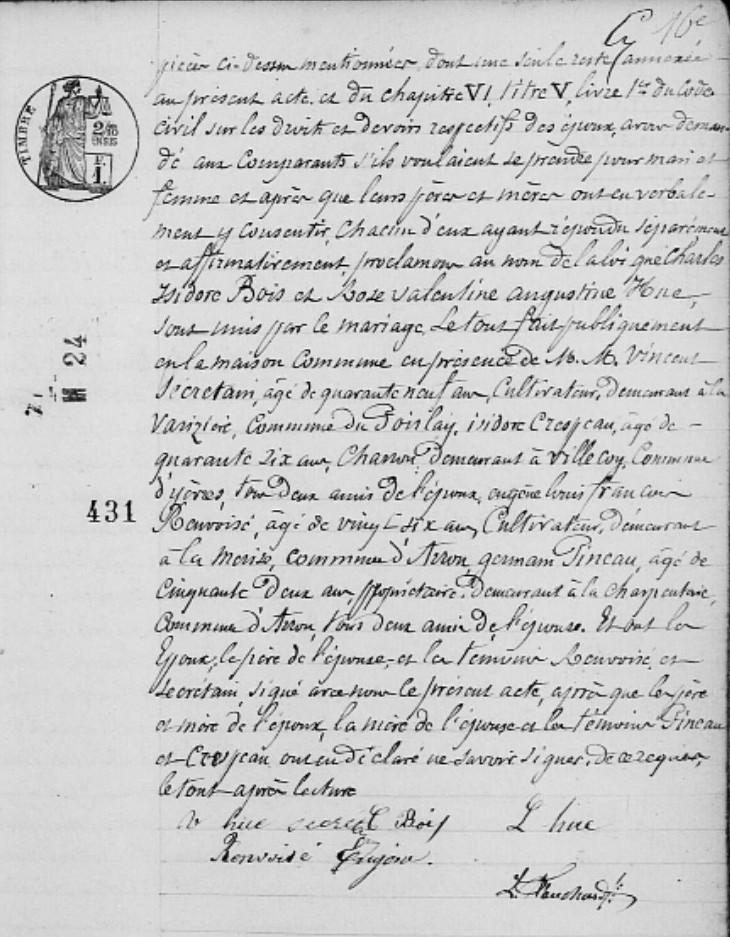 16e
pièces ci-dessus mentionnées, dont une seule reste annexée
au présent acte, et du chapitre VI, titre V, livre 1er du Code
civil sur les droits et devoirs respectifs des époux, avons deman
dé aux comparants s'ils voulaient se prendre pour mari et
femme et après que leurs pères et mères ont eu verbale-
ment y consentir, chacun d'eux ayant répondu séparément
et affirmativement, proclamons au nom de la loi que Charles
Isidore Bois et Rose Valentine Augustine Hue,
sont unis par le mariage. Le tout fait publiquement
en la maison commune en présence de M. M. Vincent
Secretain, âgé de quarante neuf ans, Cultivateur, demeurant à la
commune du Poislay, isidore Crosjeau, âgé de -
quarante six ans, Charron, demeurant à Villecoy, Commune
d'yèvres, tous deux amis de l'époux, eugène louis francois
Renvoisé, âgé de vingt-six ans, Cultivateur, demeurant
à la commune d'Arrou, germain Pineau, âgé de
cinquante deux ans, propriétaire, demeurant à la charpenterie,
commune d'Arrou, tous deux amis de l'épouse. Et ont les
Epoux, le père de l'épouse, et les témoins Renvoisé, et
Secrétain, signé avec nous le présent acte, après que les père
et mère de l'époux, la mère de l'épouse et les témoins Pineau
et Crosjeau, ont eu déclaré ne savoir signer, de ce requis,
le tout après lecture
V hue secré C Bois L hue
Renvoisé
TIMBRE
24
431